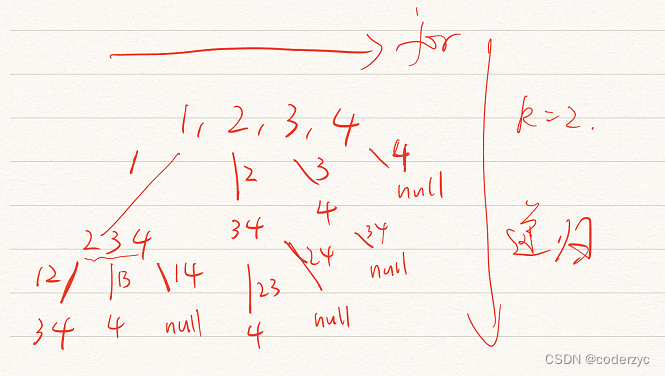 for
1, 2, 3, 4
k=2.
1 2 3 4
null
2 3 4 34 4
递归
12 13 14 23 24 34
null
34 4 null 4 null
CSDN @coderzyc